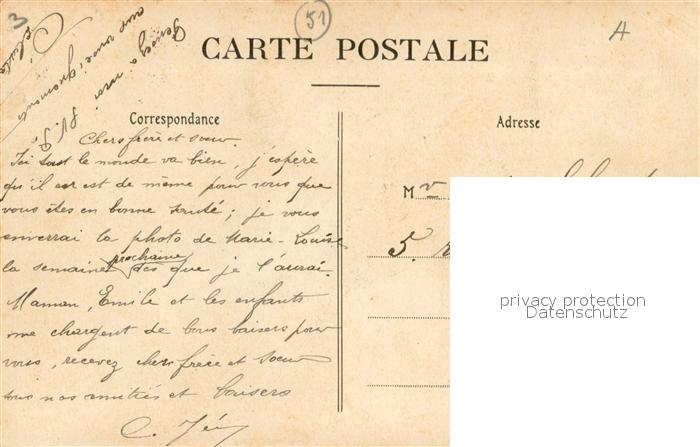 3
51
A
CARTE POSTALE
Correspondance
Adresse
Pensez à moi
aux
Célesta
P.S.
Chers frère et sœur.
Ici tout le monde va bien, j'espère
qu'il en est de même pour vous que
vous êtes en bonne santé; je vous
enverrai la photo de Marie-Louise
la semaine prochaine dès que je l'aurai.
Maman, Emile et les enfants
me chargent de bons baisers pour
vous, recevez chers frère et sœur
tous nos amitiés et baisers
C.
M
5.
privacy protection
Datenschutz